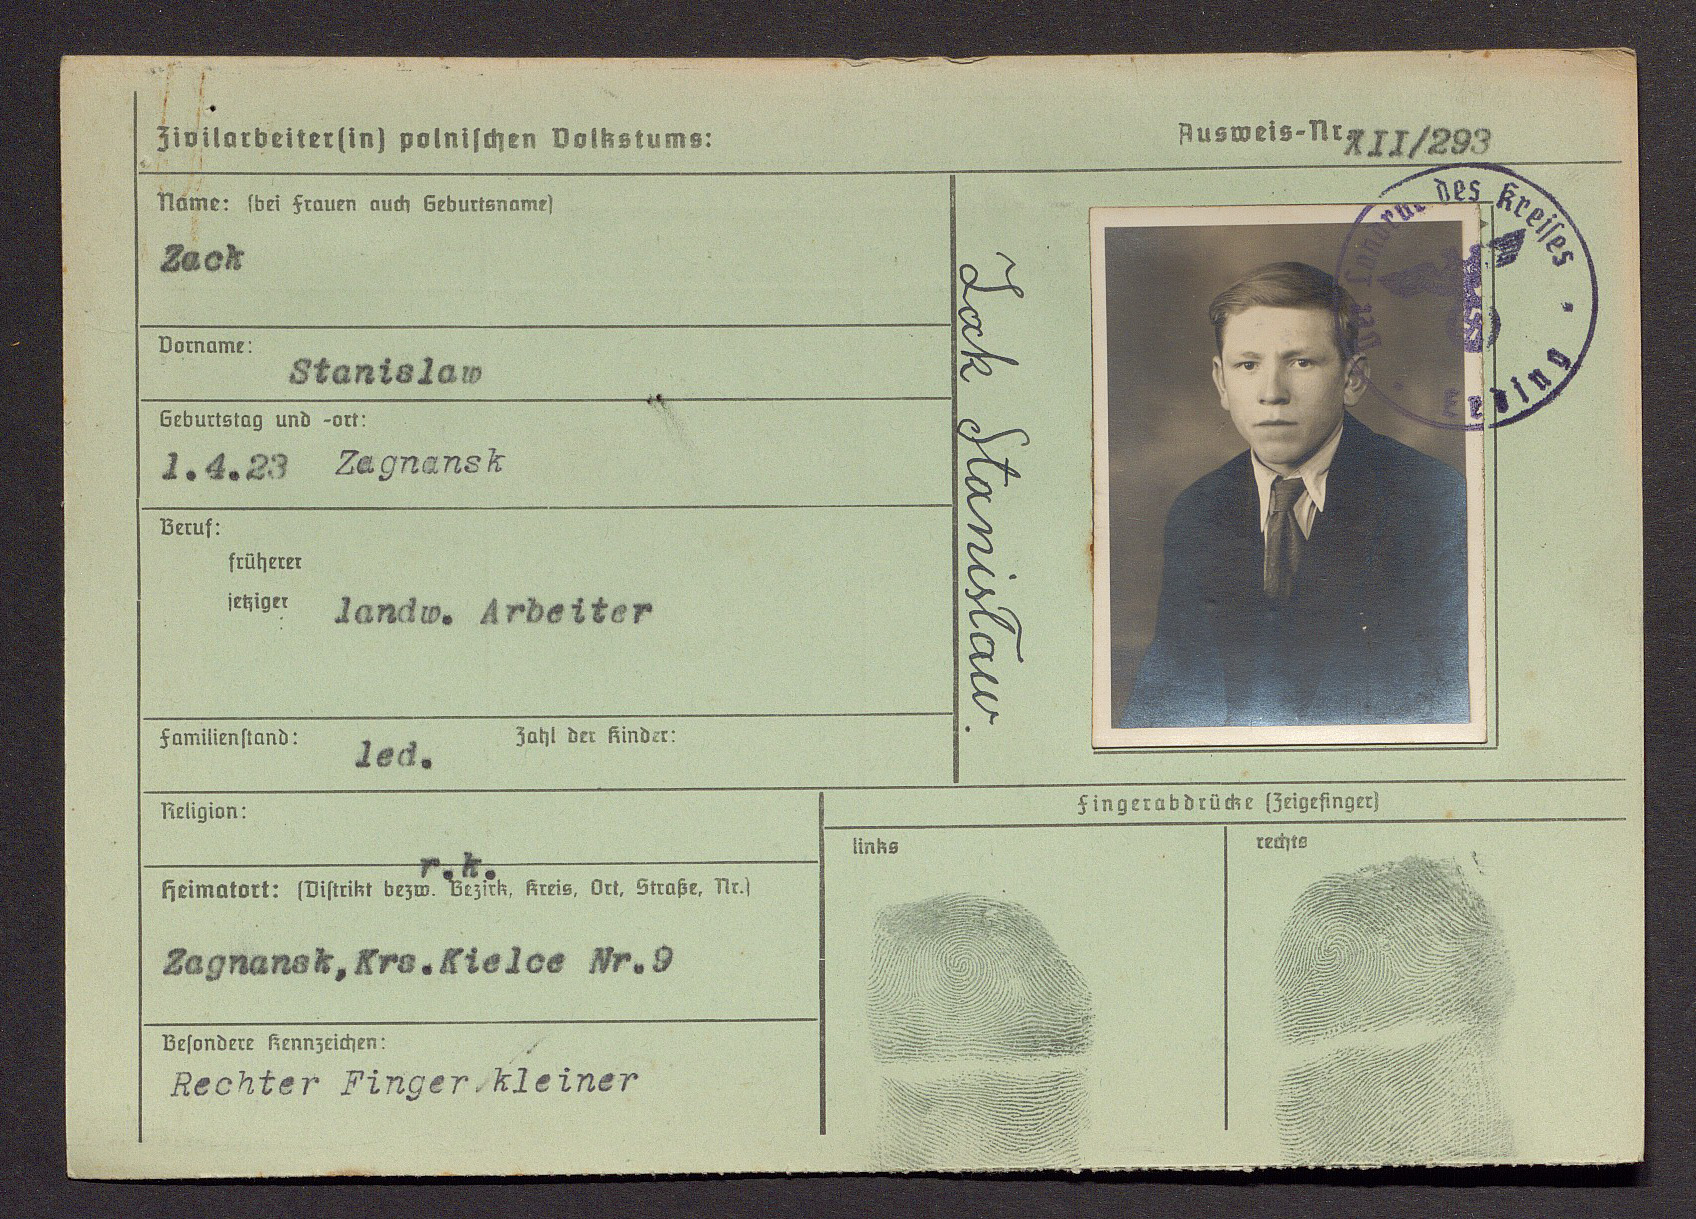 Zivilarbeiter(in) polnischen Volkstums:
Ausweis-Nr. XII/293
Name: (bei Frauen auch Geburtsname)
Zack
Vorname:
Stanislaw
Geburtstag und -ort:
1.4.23 Zagnansk
Beruf:
früherer
jetziger landw. Arbeiter
Familienstand: led. Zahl der Kinder:
Żak Stanisław.
Der Landrat des Kreises Erding
Religion:
r.k.
Heimatort: (Distrikt bezw. Bezirk, Kreis, Ort, Straße, Nr.)
Zagnansk,Krs.Kielce Nr.9
Besondere Kennzeichen:
Rechter Finger kleiner
Fingerabdrücke (Zeigefinger)
links
rechts